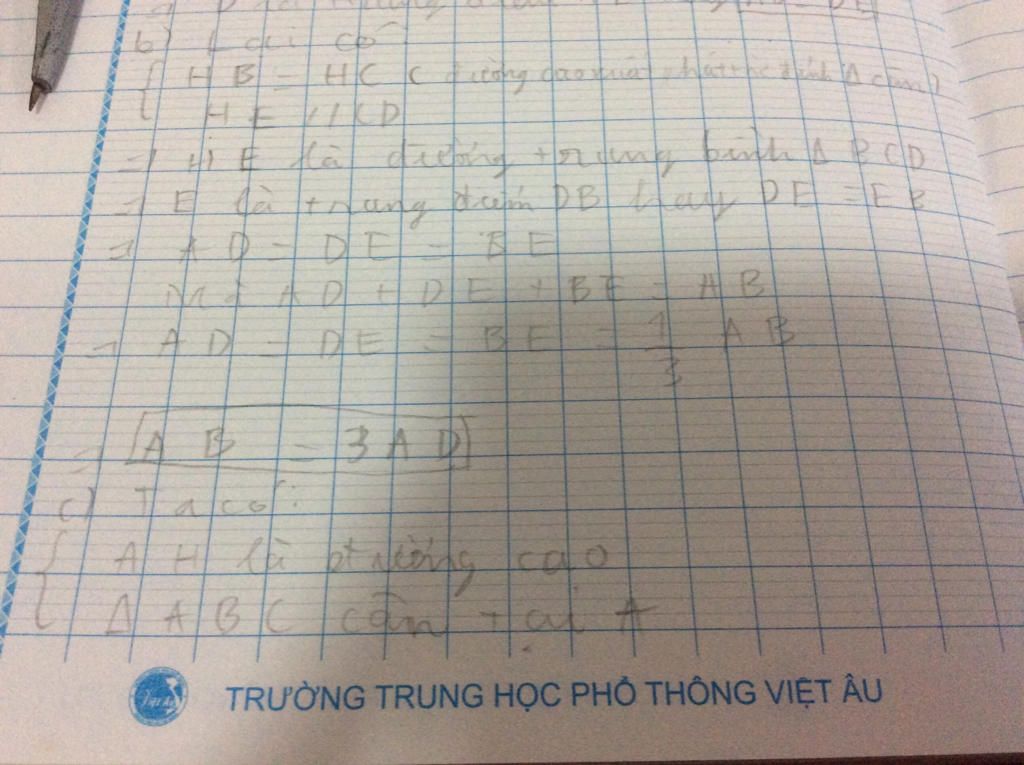 b) Lại có
{ HB = HC ( đường cao xuất phát từ đỉnh Δ cân )
HE // CD
=> HE là đường trung bình Δ BCD
=> E là trung điểm DB hay DE = EB
=> AD = DE = BE
Mà AD + DE + BE = AB
=> AD = DE = BE = 1/3 AB
=> AB = 3AD
c) Ta có:
{ AH là đường cao
Δ ABC cân tại A
TRƯỜNG TRUNG HỌC PHỔ THÔNG VIỆT ÂU